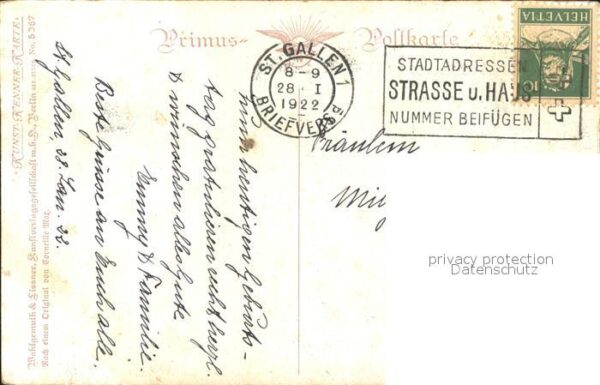 Primus-Postkarte
ST. GALLEN 1
8-9
28. I
1922
BRIEFVERSD.
STADTADRESSEN
STRASSE u. HAUS
NUMMER BEIFÜGEN
HELVETIA
Fräulein
privacy protection
Datenschutz
Zum heutigen Geburts-
tag gratulieren recht herzl.
& wünschen alles Gute
Emmy & Familie.
Beste Grüsse an Euch alle.
St. Gallen, 28. Jan. 22.
KUNST-KENNER-KARTE
Wohlgemuth & Lissner, Kunstverlagsgesellschaft m.b.H. Berlin No. 5367
Nach einem Original von Corneille Max.